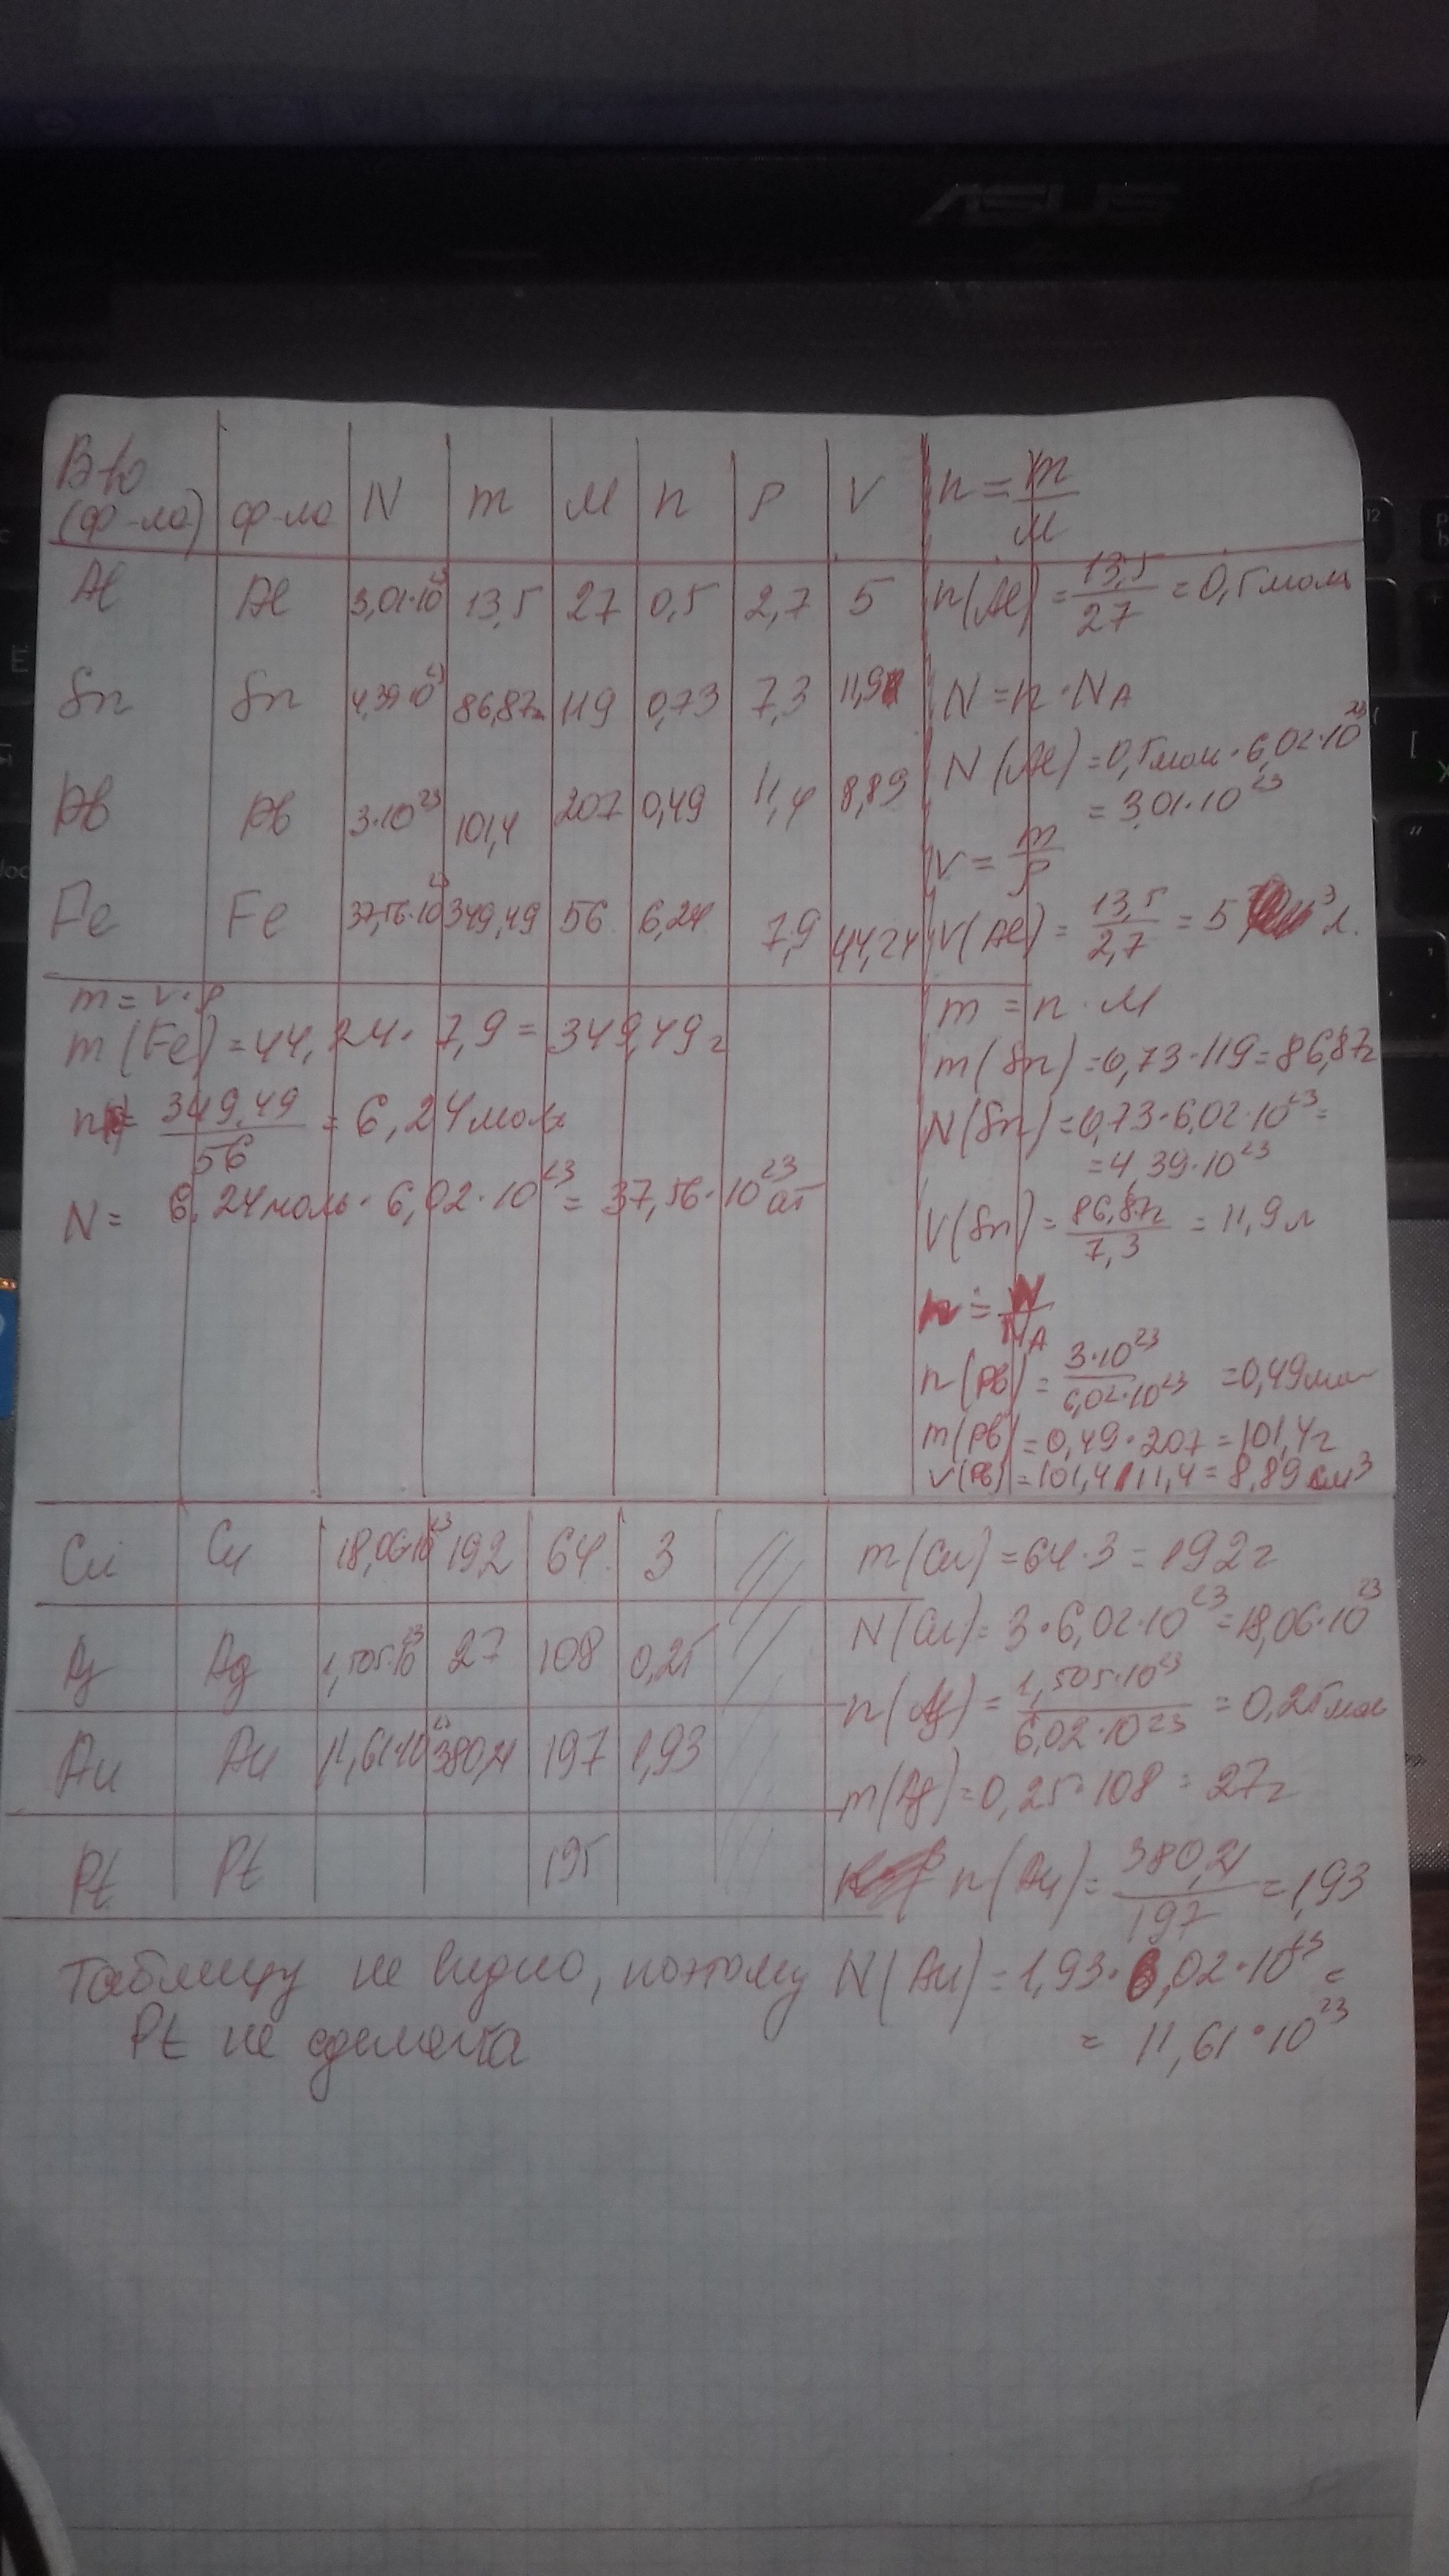 ASUS
В-во (ф-ла) ф-ла N m M n ρ V
Al Al 3,01·10²³ 13,5 27 0,5 2,7 5
Sn Sn 4,39·10²³ 86,87г 119 0,73 7,3 11,9
Pb Pb 3·10²³ 101,4 207 0,49 11,4 8,89
Fe Fe 37,56·10²³ 349,49 56 6,24 7,9 44,24
m = v·ρ
m(Fe) = 44,24·7,9 = 349,49г
n = 349,49/56 = 6,24 моль
N = 6,24 моль·6,02·10²³ = 37,56·10²³ ат
n = m/M
n(Al) = 13,5/27 = 0,5 моль
N = n·NA
N(Al) = 0,5 моль·6,02·10²³
= 3,01·10²³
V = m/ρ
V(Al) = 13,5/2,7 = 5 л.
m = n·M
m(Sn) = 0,73·119 = 86,87г
N(Sn) = 0,73·6,02·10²³ =
= 4,39·10²³
V(Sn) = 86,87г/7,3 = 11,9 л
n = N/NA
n(Pb) = 3·10²³/6,02·10²³ = 0,49 моль
m(Pb) = 0,49·207 = 101,4г
V(Pb) = 101,4/11,4 = 8,89 см³
Cu Cu 18,06·10²³ 192 64 3
Ag Ag 1,505·10²³ 27 108 0,25
Au Au 11,61·10²³ 380,21 197 1,93
Pt Pt 195
m(Cu) = 64·3 = 192г
N(Cu) = 3·6,02·10²³ = 18,06·10²³
n(Ag) = 1,505·10²³/6,02·10²³ = 0,25 моль
m(Ag) = 0,25·108 = 27г
n(Au) = 380,21/197 = 1,93
N(Au) = 1,93·6,02·10²³ =
= 11,61·10²³
Таблицу не видно, поэтому
Pt не сделала